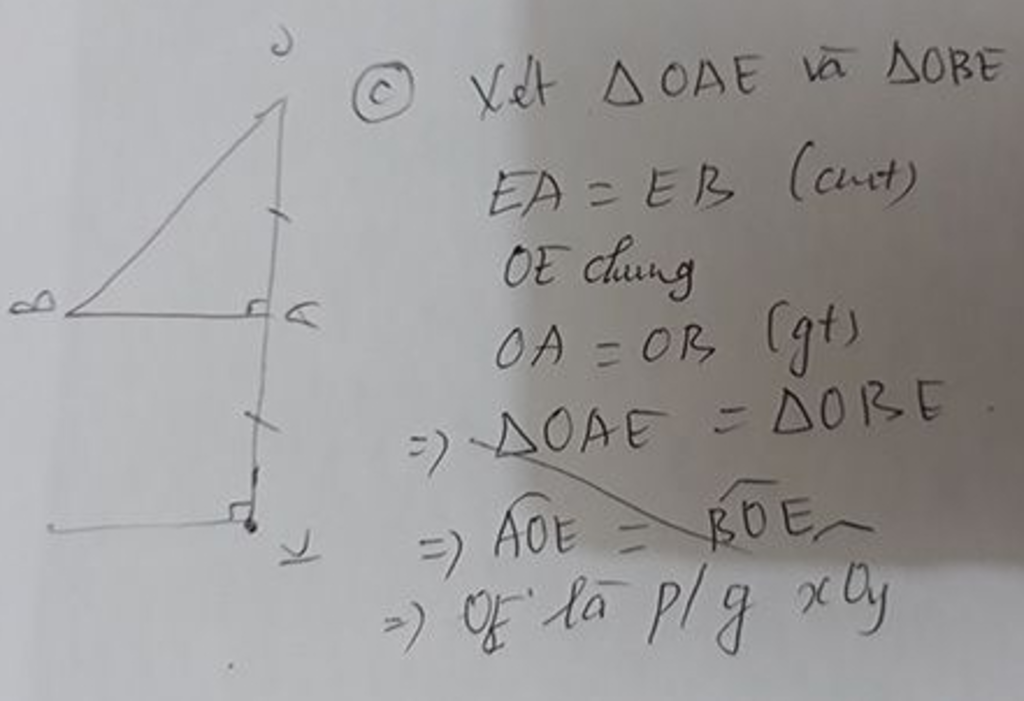 ⓒ Xét ΔOAE và ΔOBE
EA = EB (cmt)
OE chung
OA = OB (gt)
=> ΔOAE = ΔOBE.
=> AOE = BOE
=> OE là p/g xOy
O
B
A
K